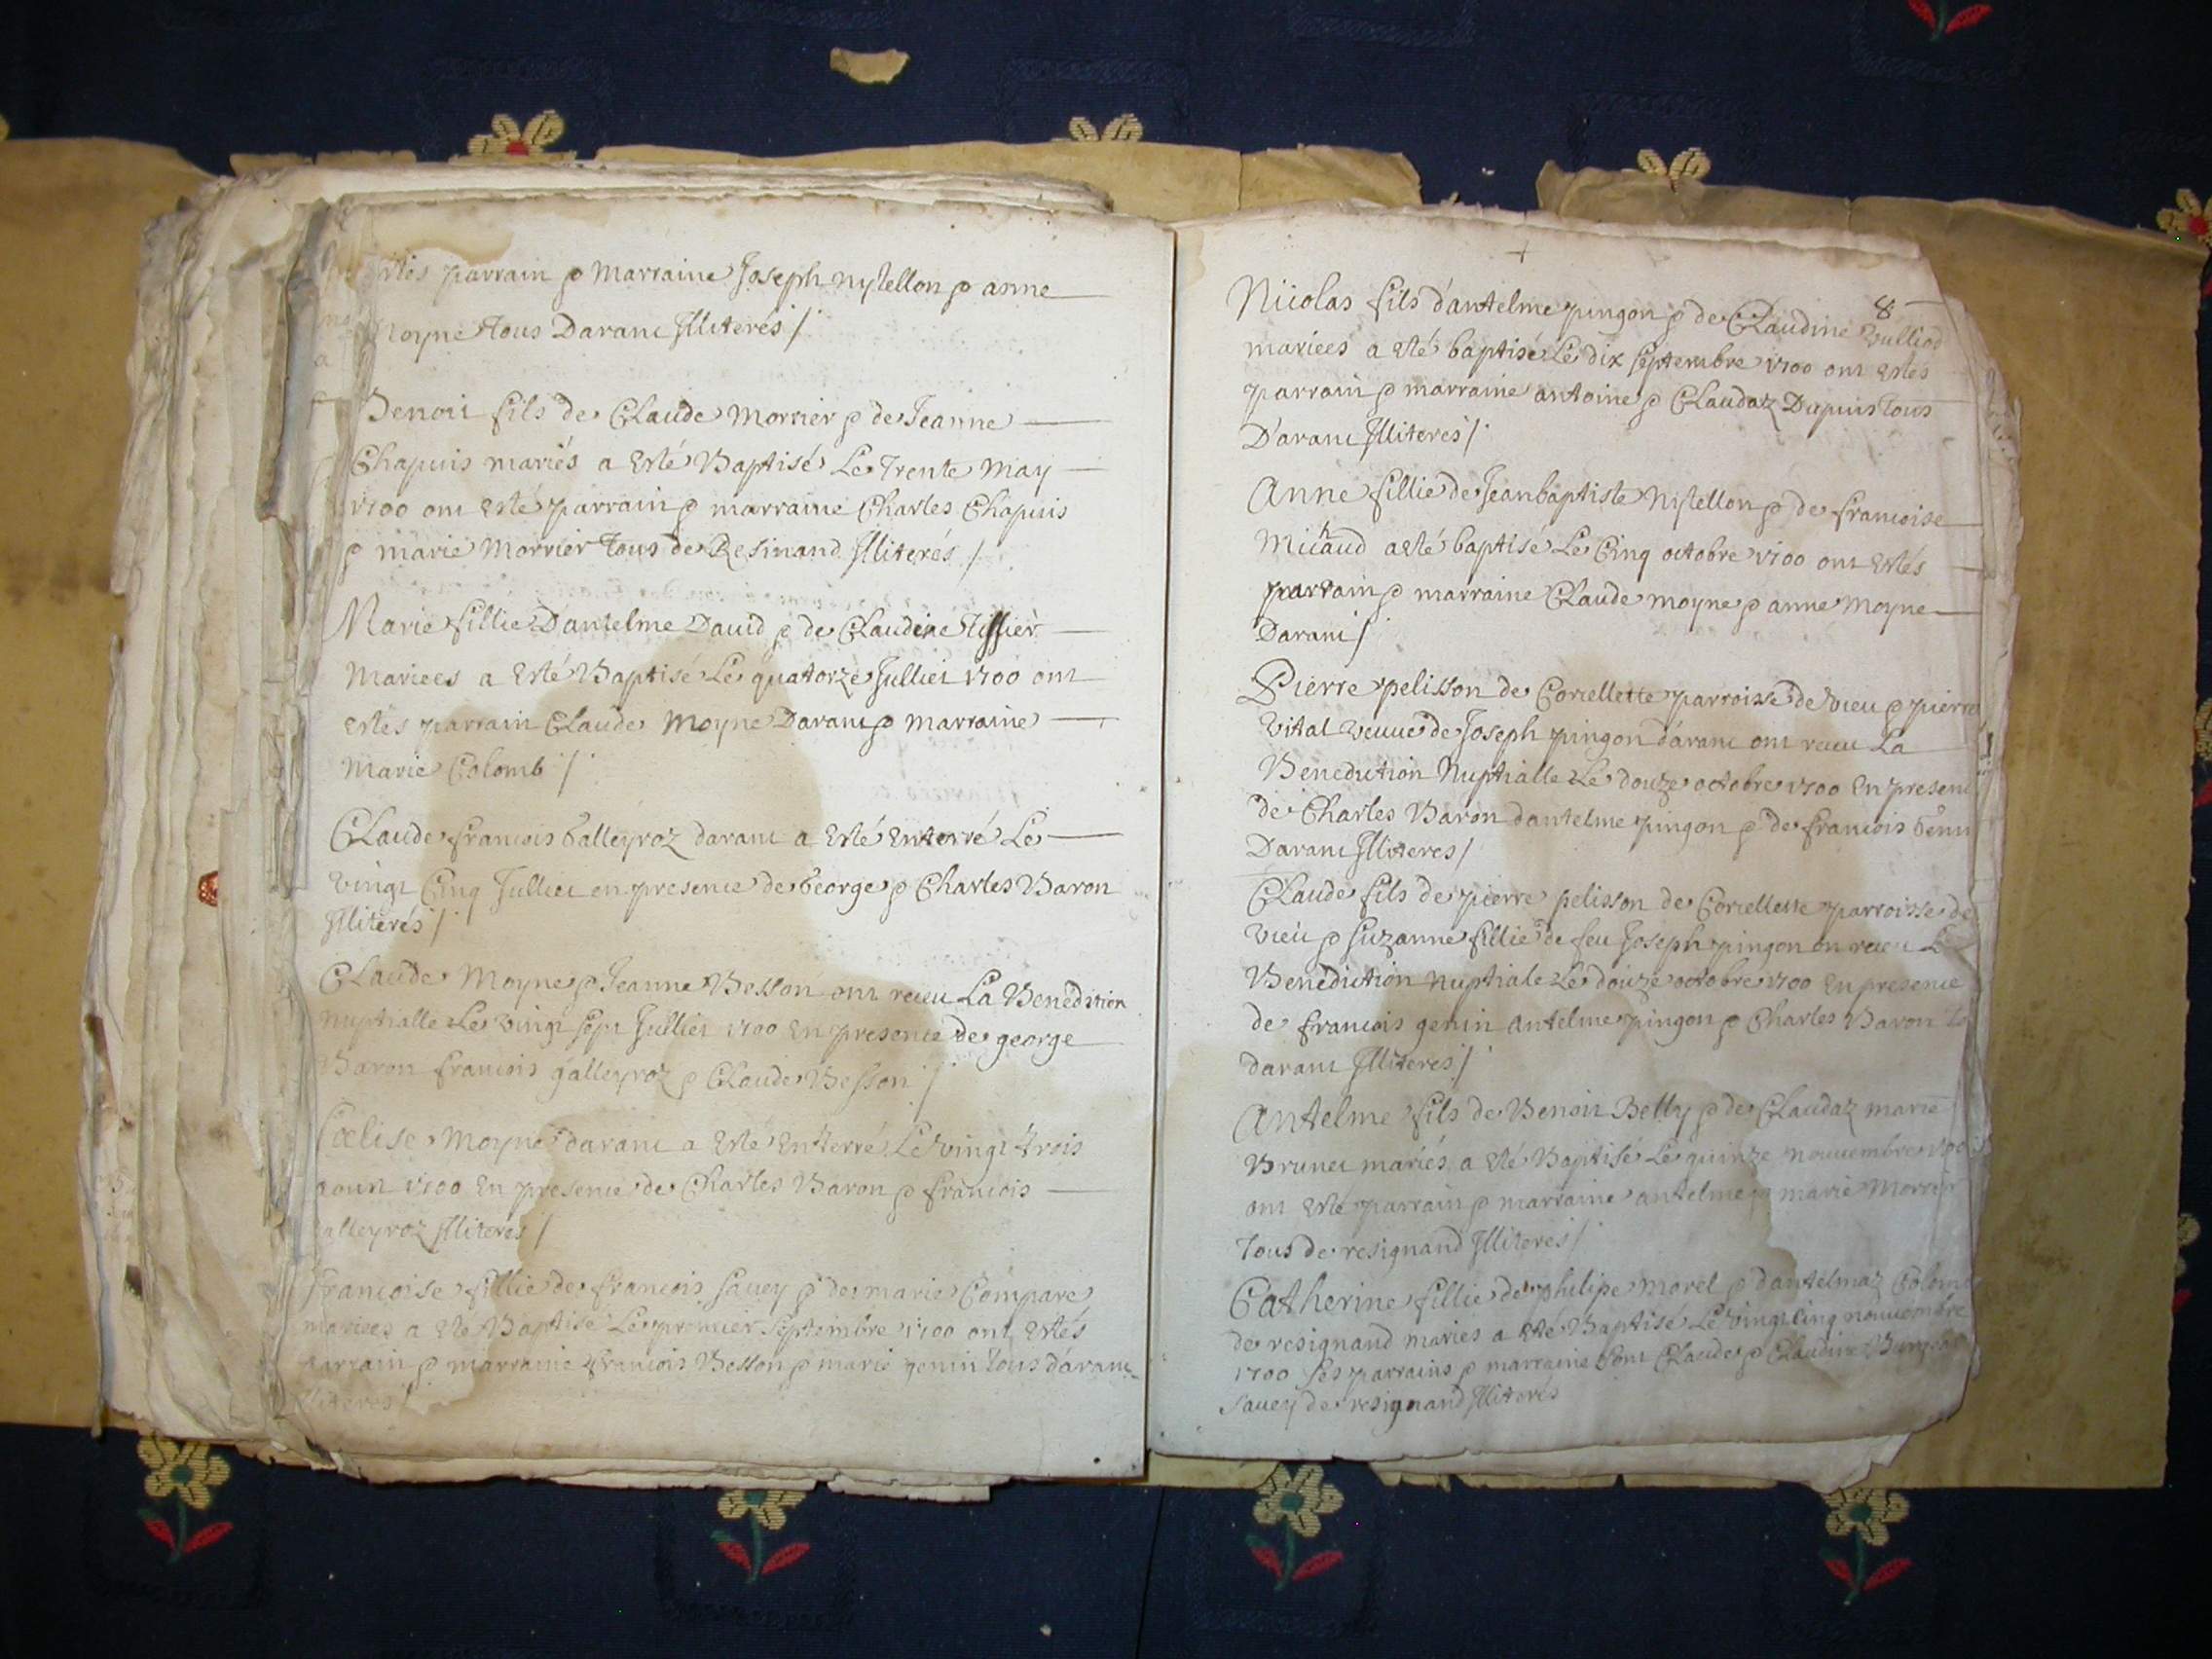 estés parrain & marraine Joseph nytellon & anne
moyne tous Daranc Illiterés /
Benoit fils de Claude Morrier & de Jeanne
Chapuis mariés a Esté Baptisé Le Trente May
1700 ont Esté parrain & marraine Charles Chapuis
& marie Morrier Tous de Resinand Illiterés /
Marie fillie D'antelme David & de Claudine Tissier
Mariees a Esté Baptisé Le quatorze Julliet 1700 ont
Estés parrain Claude Moyne Daranc & Marraine
Marie Colomb /
Claude francois Galleyroz daranc a Esté Enterré Le
vingt Cinq Julliet en presence de George & Charles Baron
Illiterés /
Claude Moyne & Jeanne Besson ont receu La Benedition
Nuptialle Le vingt sept Julliet 1700 En presence de george
Baron francois galleyroz & Claude Besson /
Moyne daranc a Esté Enterré Le vingt trois
aoust 1700 En presence de Charles Baron & francois
galleyroz Illiterés /
Francoise fillie de francois Savey & de marie Compare
mariees a Esté Baptisé Le premier Septembre 1700 ont Estés
parrain & marraine francois Besson & marie genin tous daranc
Illiteres /
8
Nicolas fils d'antelme pingon & de Claudine Vulliod
mariees a Esté baptisé Le dix Septembre 1700 ont Estés
parrain & marraine antoine & Claudaz Dupuis tous
D'aranc Illiteres /
Anne fillie de Jeanbaptiste Nytellon & de francoise
Michaud a esté baptise Le Cinq octobre 1700 ont Estés
parrain & marraine Claude moyne & anne Moyne
Daranc /
Pierre pelisson de Corcellette parroisse de vieu & pierre
vital veuve de Joseph pingon d'aranc ont receu La
Benediction Nuptialle Le douze octobre 1700 En presence
de Charles Baron dantelme pingon & de francois Genin
Daranc Illiteres /
Claude fils de pierre pelisson de Corcellette parroisse de
vieu & Suzanne fillie de feu Joseph pingon on receu La
Benediction Nuptiale Le douze octobre 1700 En presence
de francois genin antelme pingon & Charles Baron
daranc Illiteres /
Antelme fils de Benoit Belly & de Claudaz marie
Brunet mariés a Esté Baptisé Le quinze nouuembre 1700
ont Esté parrain & marraine antelme & marie Morrier
tous de resignand Illiteres /
Catherine fillie de philipe Morel & dantelmaz Colomb
de resignand maries a Esté Baptisé Le vingt Cinq nouuembre
1700 Ses parrains & marraine sont Claude & Claudine
Savey de resignand Illiterés